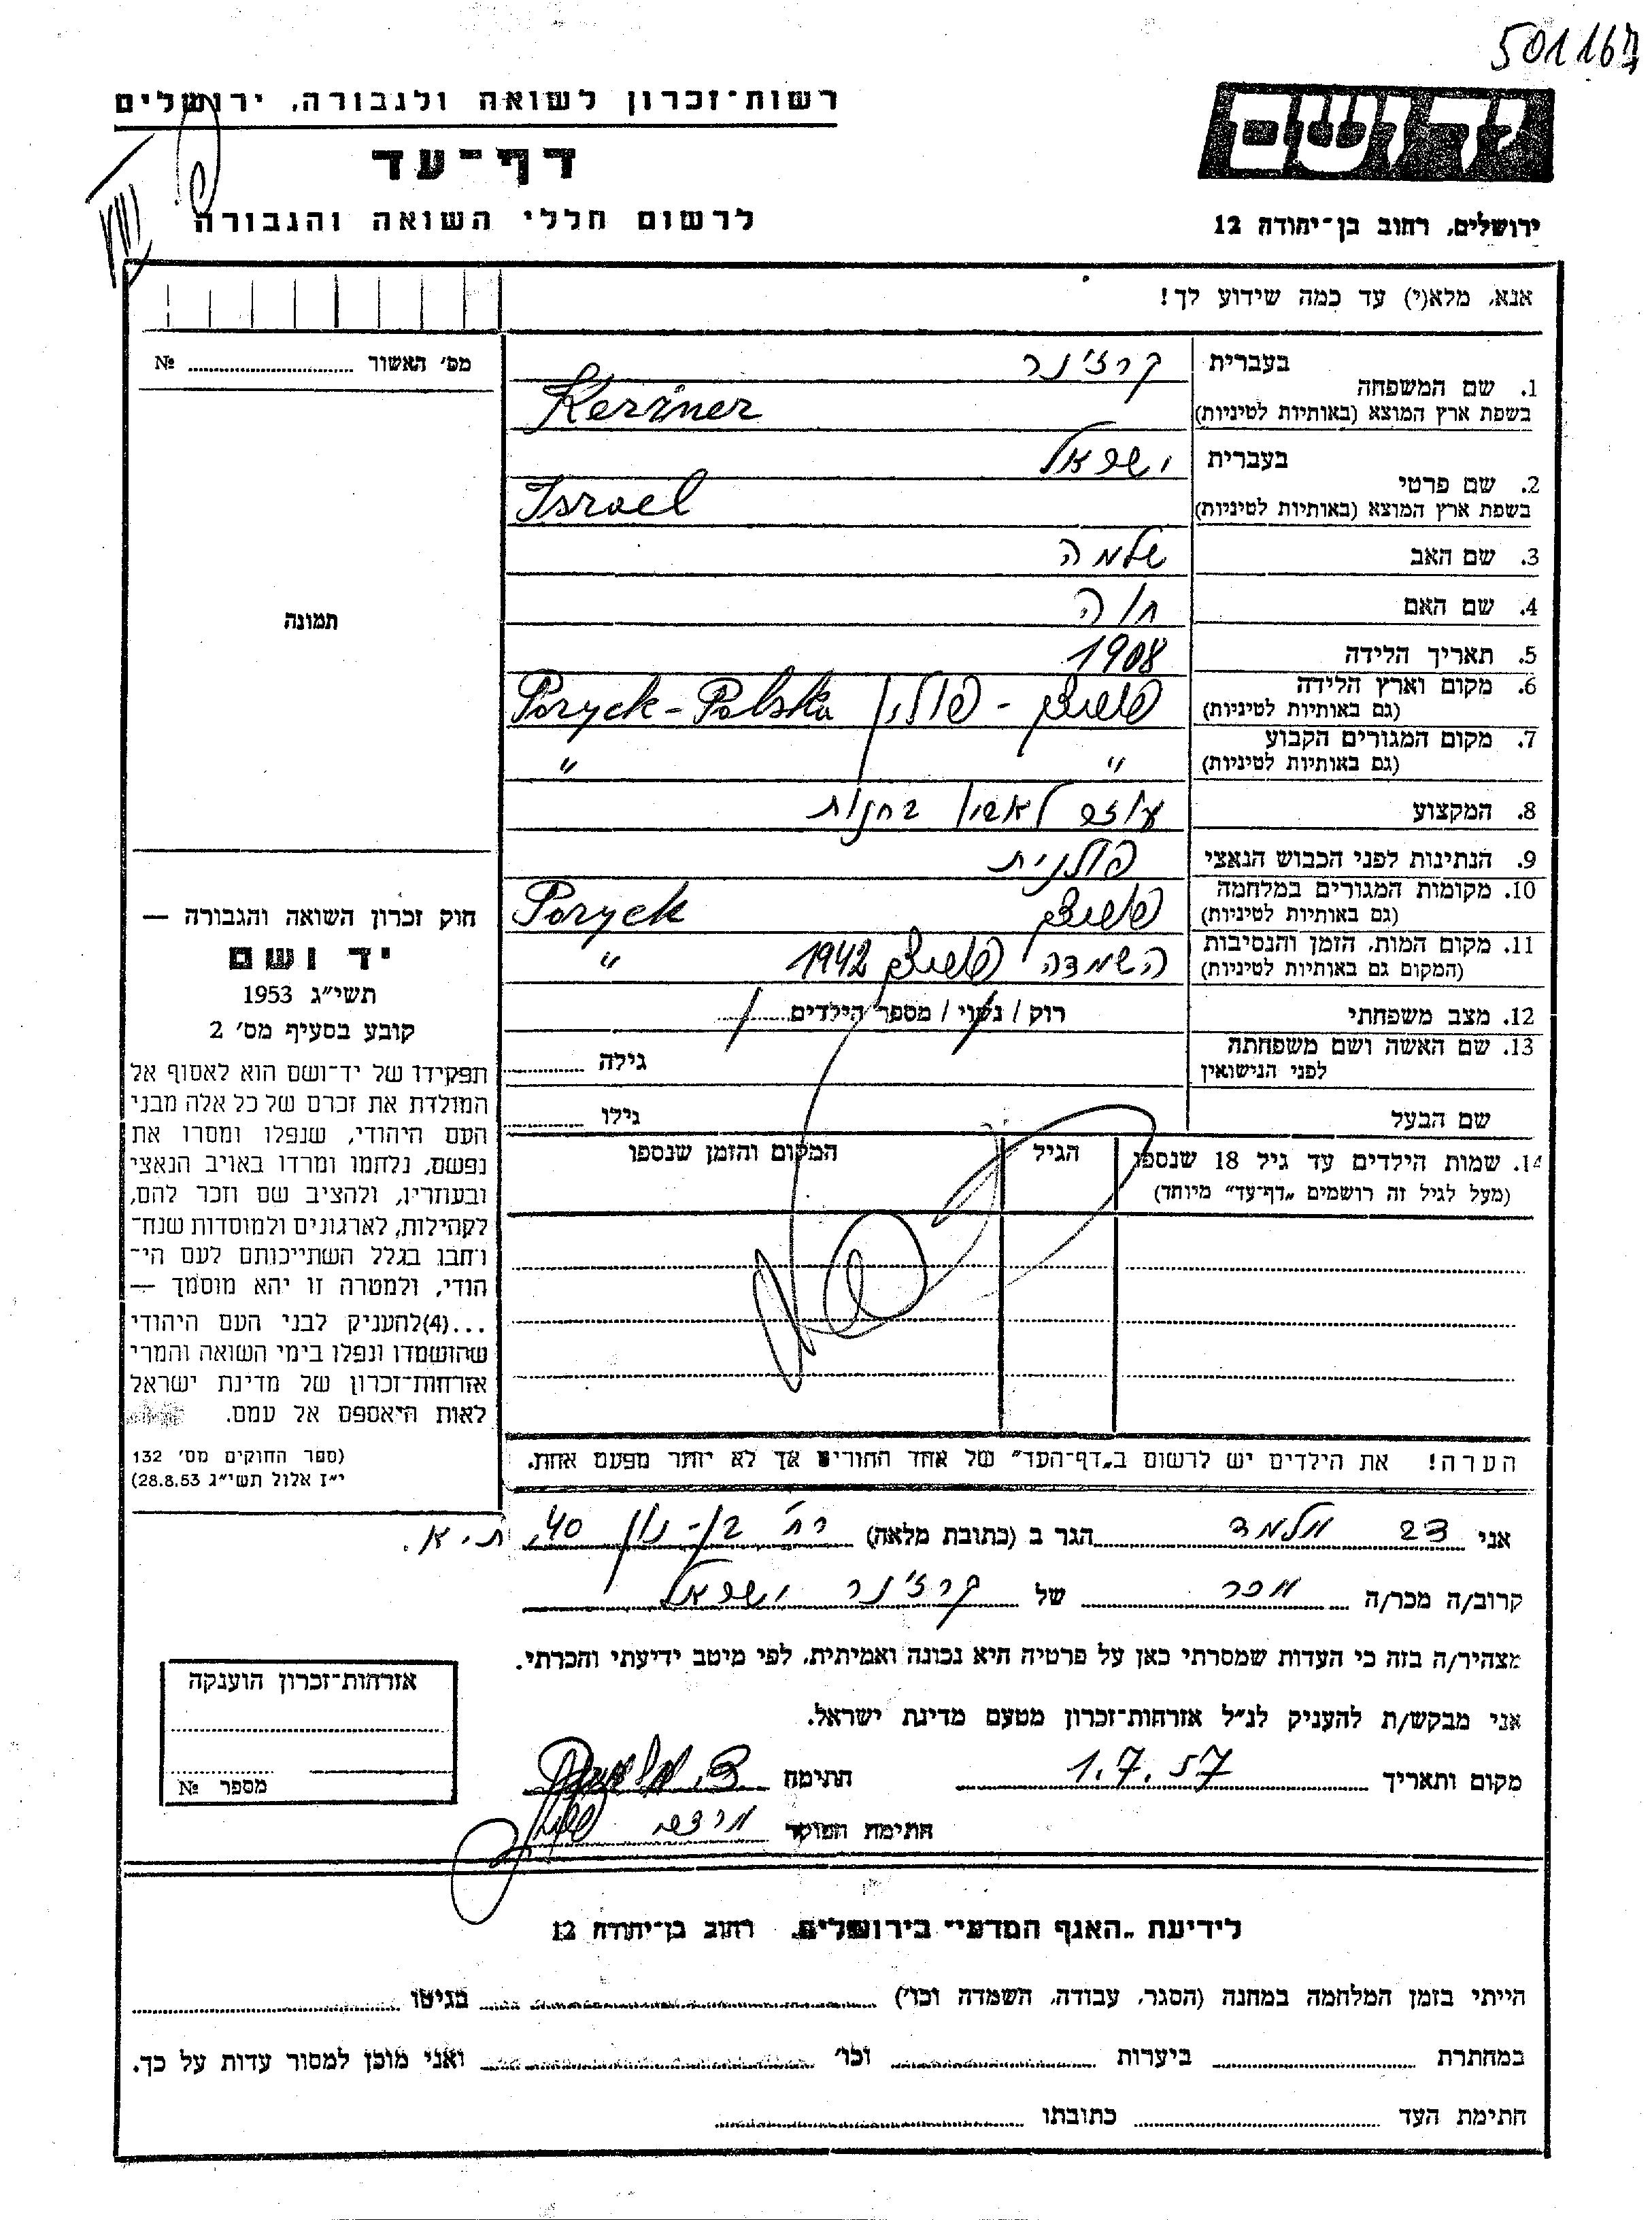 501167
רשות־זכרון לשואה ולגבורה, ירושלים
דף־עד
לרשום חללי השואה והגבורה
יד ושם
ירושלים, רחוב בן־יהודה 12
אנא, מלא(י) עד כמה שידוע לך!
מס׳ האשור № ........
תמונה
1. שם המשפחה בעברית קרז'נר
בשפת ארץ המוצא (באותיות לטיניות) Kerżner
2. שם פרטי בעברית ישראל
בשפת ארץ המוצא (באותיות לטיניות) Israel
3. שם האב שלמה
4. שם האם חוה
5. תאריך הלידה 1908
6. מקום וארץ הלידה (גם באותיות לטיניות) פוריצק - פולין Poryck - Polska
7. מקום המגורים הקבוע (גם באותיות לטיניות) " "
8. המקצוע עוזר ראשון בחנות
9. הנתינות לפני הכבוש הנאצי פולנית
10. מקומות המגורים במלחמה (גם באותיות לטיניות) פוריצק Poryck
11. מקום המות, הזמן והנסיבות (המקום גם באותיות לטיניות) השמדה פוריצק 1942 "
12. מצב משפחתי רוק / נשוי / מספר הילדים ........
13. שם האשה ושם משפחתה לפני הנישואין גילה ........
שם הבעל גילו ........
14. שמות הילדים עד גיל 18 שנספו הגיל המקום והזמן שנספו
(מעל לגיל זה רושמים „דף־עד” מיוחד)
הערה! את הילדים יש לרשום ב„דף־העד” של אחד ההורים אך לא יותר מפעם אחת.
חוק זכרון השואה והגבורה —
יד ושם
תשי״ג 1953
קובע בסעיף מס׳ 2
תפקידו של יד־ושם הוא לאסוף אל
המולדת את זכרם של כל אלה מבני
העם היהודי, שנפלו ומסרו את
נפשם, נלחמו ומרדו באויב הנאצי
ובעוזריו, ולהציב שם וזכר להם,
לקהילות, לארגונים ולמוסדות שנח־
רחבו בגלל השתייכותם לעם הי־
הודי, ולמטרה זו יהא מוסמך —
...(4)להעניק לבני העם היהודי
שהושמדו ונפלו בימי השואה והמרי
אזרחות־זכרון של מדינת ישראל
לאות היאספם אל עמם.
(ספר החוקים מס׳ 132
י״ז אלול תשי״ג 28.8.53)
אני דב מלמד הגר ב (כתובת מלאה) רח' בן-נון 40, ת.א.
קרוב/ה מכר/ה מכר של קרז'נר ישראל
מצהיר/ה בזה כי העדות שמסרתי כאן על פרטיה היא נכונה ואמיתית, לפי מיטב ידיעתי והכרתי.
אני מבקש/ת להעניק לנ״ל אזרחות־זכרון מטעם מדינת ישראל.
מקום ותאריך 1.7.57 חתימה ד. מלמד
חתימת הפוקד
אזרחות־זכרון הוענקה
מספר №
לידיעת „האגף המדעי” בירושלים, רחוב בן־יהודה 12
הייתי בזמן המלחמה במחנה (הסגר, עבודה, השמדה וכו׳) ........ בגיטו ........
במחתרת ........ ביערות ........ וכו׳ ........ ואני מוכן למסור עדות על כך.
חתימת העד ........ כתובתו ........